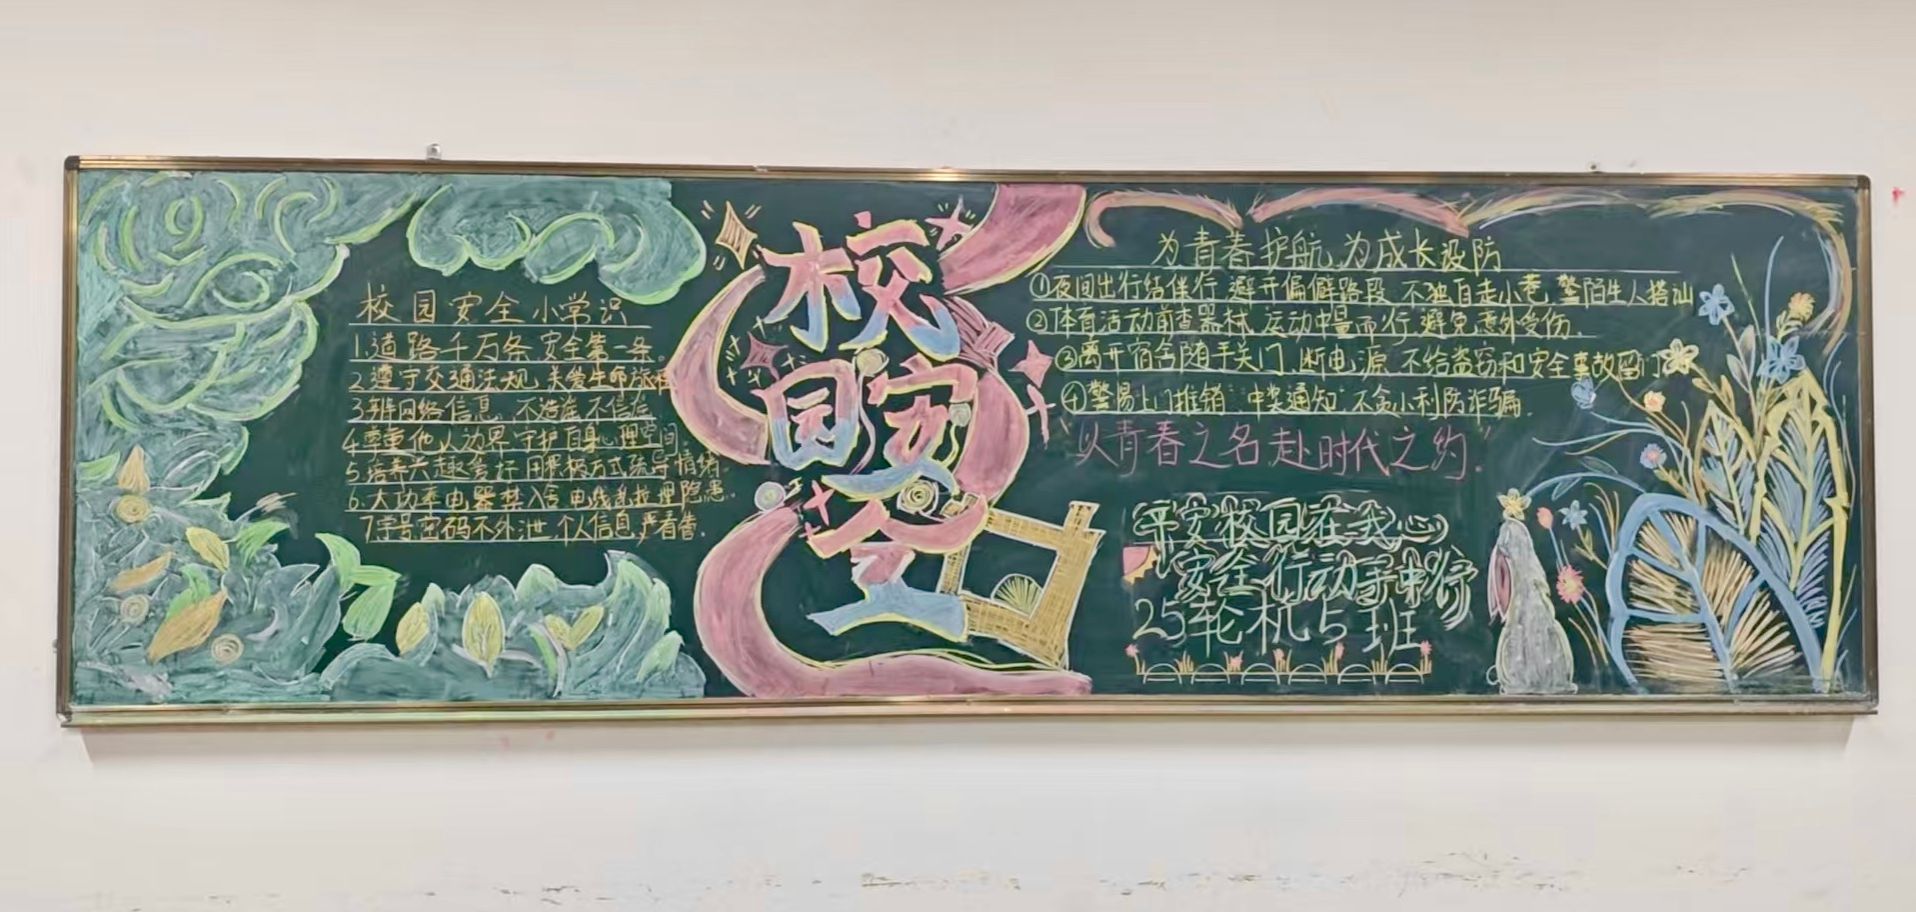 校园安全小学识
1.道路千万条安全第一条。
2.遵守交通法规,关爱生命旅程
3.辨网络信息,不造谣不信谣
4.尊重他人边界守护自身心理空间.
5.培养兴趣爱好用积极方式疏导情绪.
6.大功率电器禁入舍电线乱拉埋隐患.
7.学号密码不外泄个人信息严看管.
校园安全
为青春护航,为成长设防
①夜间出行结伴行,避开偏僻路段,不独自走小巷,警陌生人搭讪
②体育活动前查器械,运动中量而行,避免意外受伤.
③离开宿舍随手关门,断电源,不给盗窃和安全事故留门
④警易上门推销"中奖通知"不贪小利防诈骗.
以青春之名,赴时代之约.
平安校园在我心
安全行动手中行
25轮机5班